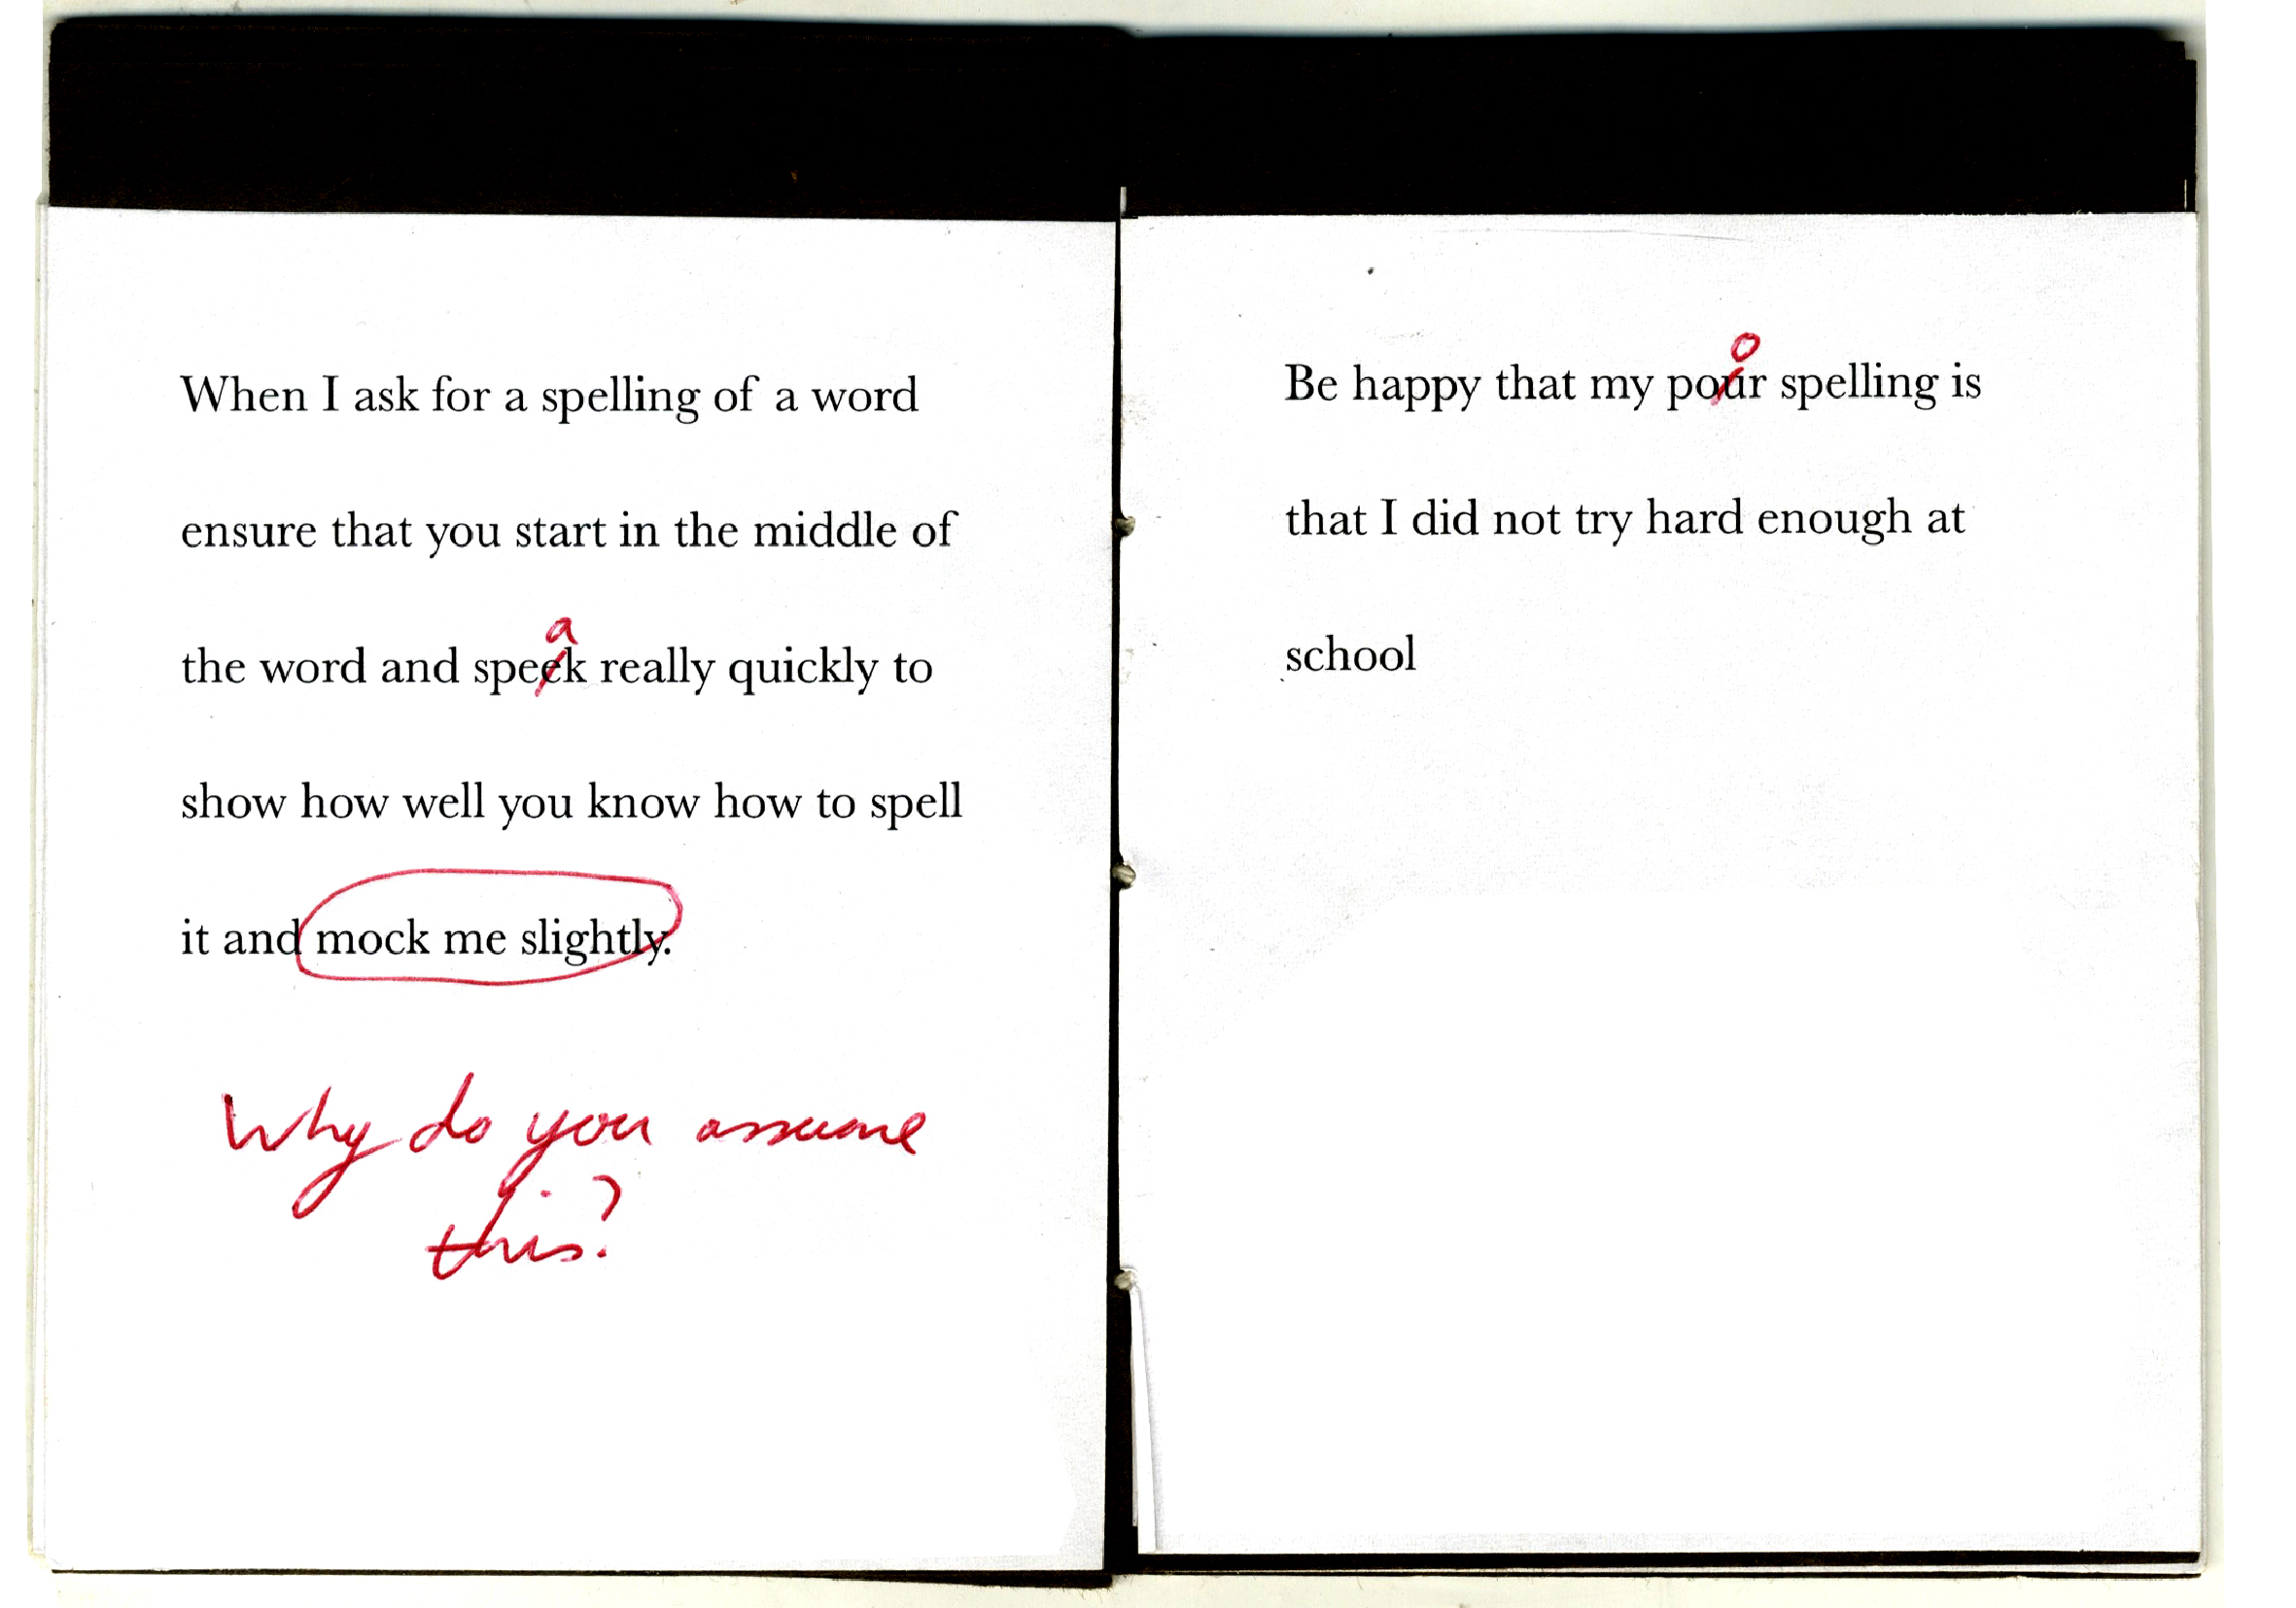 When I ask for a spelling of a word
ensure that you start in the middle of
a
the word and speek really quickly to
show how well you know how to spell
it and mock me slightly.
Why do you assume
this?
o
Be happy that my pour spelling is
that I did not try hard enough at
school